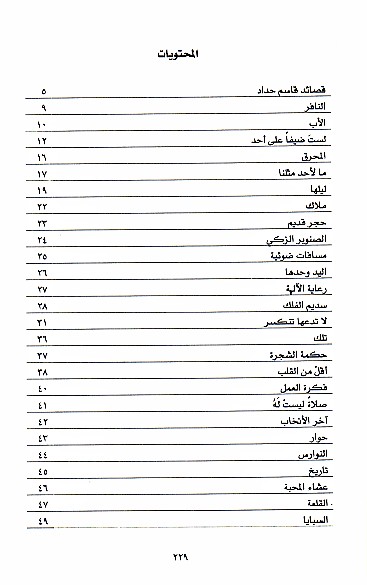 المحتويات
قصائد قاسم حداد ٥
النافر ٩
الأب ١٠
لست ضيفاً على أحد ١٢
المحرق ١٦
ما لأحد مثلنا ١٧
ليلها ١٩
ملاك ٢٢
حجر قديم ٢٣
الصنوبر الزكي ٢٤
مسافات ضوئية ٢٥
اليد وحدها ٢٦
رعاية الآلهة ٢٧
سديم الفلك ٢٨
لا تدعها تنكسر ٣١
تلك ٣٦
حكمة الشجرة ٣٧
أقل من القلب ٣٨
فكرة العمل ٤٠
صلاةٌ ليستْ لَهُ ٤١
آخر الأنخاب ٤٢
حوار ٤٣
النوارس ٤٤
تاريخ ٤٥
عشاء المحبة ٤٦
القلعة ٤٧
السبايا ٤٩
٢٢٩